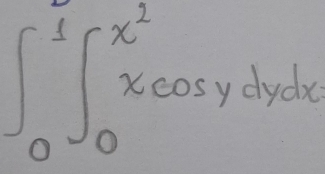 ∫₀¹ ∫₀^{x²} x cos y dy dx =